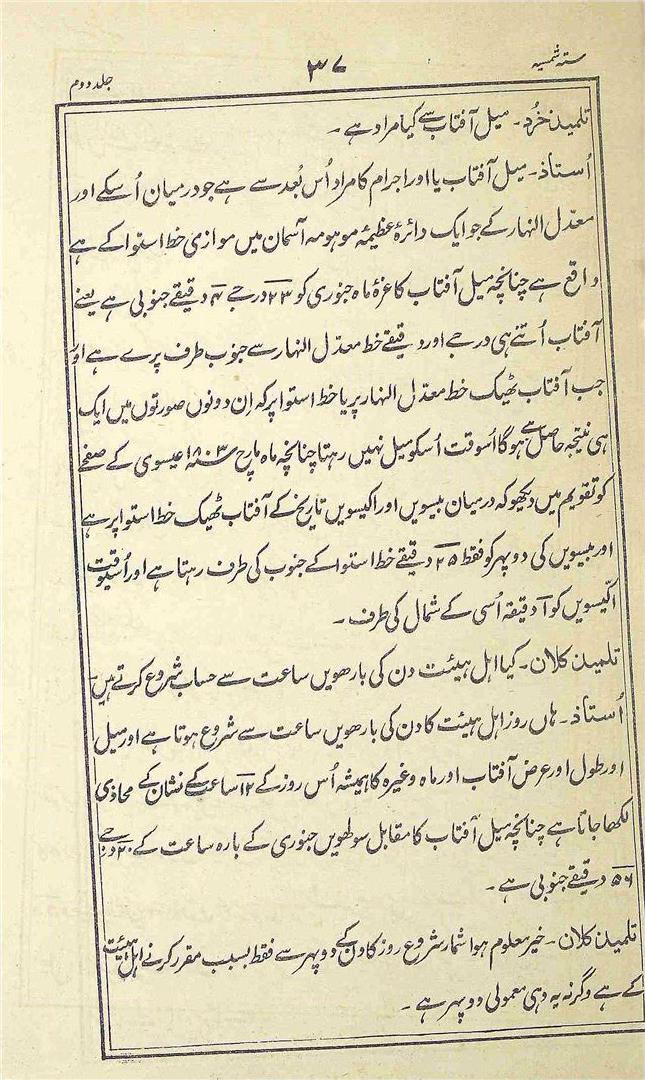 ستہ شمسیہ ۳۷ جلد دوم
تلمیذ خرد۔ میل آفتاب سے کیا مراد ہے۔
اُستاذ۔ میل آفتاب یا اور اجرام کا مراد اُس بُعد سے ہے جو درمیان اُسکے اور
معدّل النہار کے جو ایک دائرۂ عظیمۂ موہومہ آسمان میں موازی خط استوا کے ہے
واقع ہے چنانچہ میل آفتاب کا غرۂ ماہ جنوری کو ۲۳ درجے ۴ دقیقے جنوبی ہے یعنے
آفتاب اُتنے ہی درجے اور دقیقے خط معدّل النہار سے جنوب طرف پرے ہے اور
جب آفتاب ٹھیک خط معدّل النہار پر یا خط استوا پر کہ اِن دونوں صورتوں میں ایک
ہی نتیجہ حاصل ہے ہوگا اُسوقت اُسکو میل نہیں رہتا چنانچہ ماہ مارچ ۱۸۰۳ عیسوی کے صفحے
کو تقویم میں دیکھو کہ درمیان بیسویں اور اکیسویں تاریخ کے آفتاب ٹھیک خط استوا پر ہے
اور بیسویں کی دوپہر کو فقط ۲۵ دقیقے خط استوا کے جنوب کی طرف رہتا ہے اور اُسیوقت
اکیسویں کو آ دقیقہ اُسی کے شمال کی طرف۔
تلمیذ کلان۔ کیا اہل ہیئت دن کی بارھویں ساعت سے حساب شروع کرتے ہیں
اُستاذ۔ ہاں روز اہل ہیئت کا دن کی بارھویں ساعت سے شروع ہوتا ہے اور میل
اور طول اور عرض آفتاب اور ماہ وغیرہ کا ہمیشہ اُس روز کے ۱۲ ساعت کے نشان کے محاذی
لکھا جاتا ہے چنانچہ میل آفتاب کا مقابل سولھویں جنوری کے بارہ ساعت کے ۲۰ درجے
۵۶ دقیقے جنوبی ہے۔
تلمیذ کلان۔ خیر معلوم ہوا شمار شروع روز کا دن کے دوپہر سے فقط بسبب مقرر کرنے اہل ہیئت
کے ہے وگرنہ یہ وہی معمولی دوپہر ہے۔